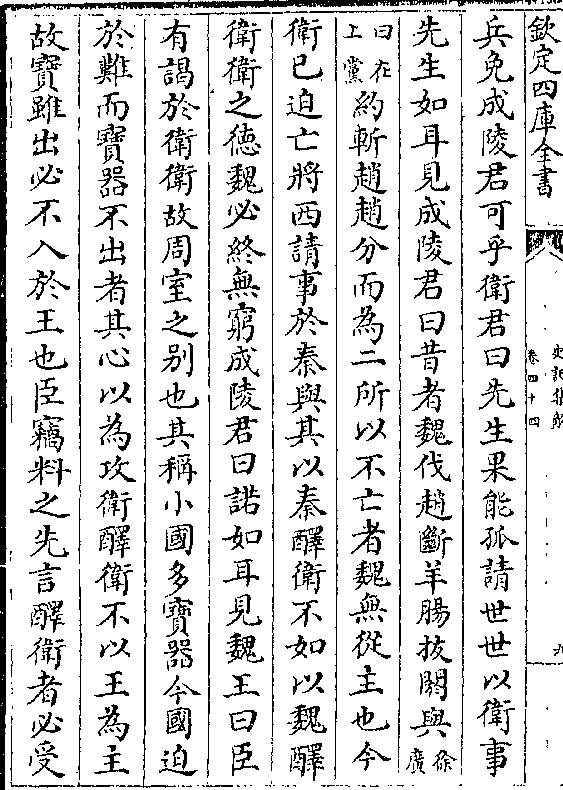 欽定四庫全書
史記集解
卷四十四
九
兵免成陵君可乎衛君曰先生果能孤請世世以衛事
先生如耳見成陵君曰昔者魏伐趙斷羊腸拔閼與徐廣
曰在上黨約斬趙趙分而為二所以不亡者魏無從主也今
衛已迫亡將西請事於秦與其以秦醳衛不如以魏醳
衛衛之德魏必終無窮成陵君曰諾如耳見魏王曰臣
有謁於衛衛故周室之别也其稱小國多寶器今國迫
於難而寶器不出者其心以為攻衛醳衛不以王為主
故寶雖出必不入於王也臣竊料之先言醳衛者必受